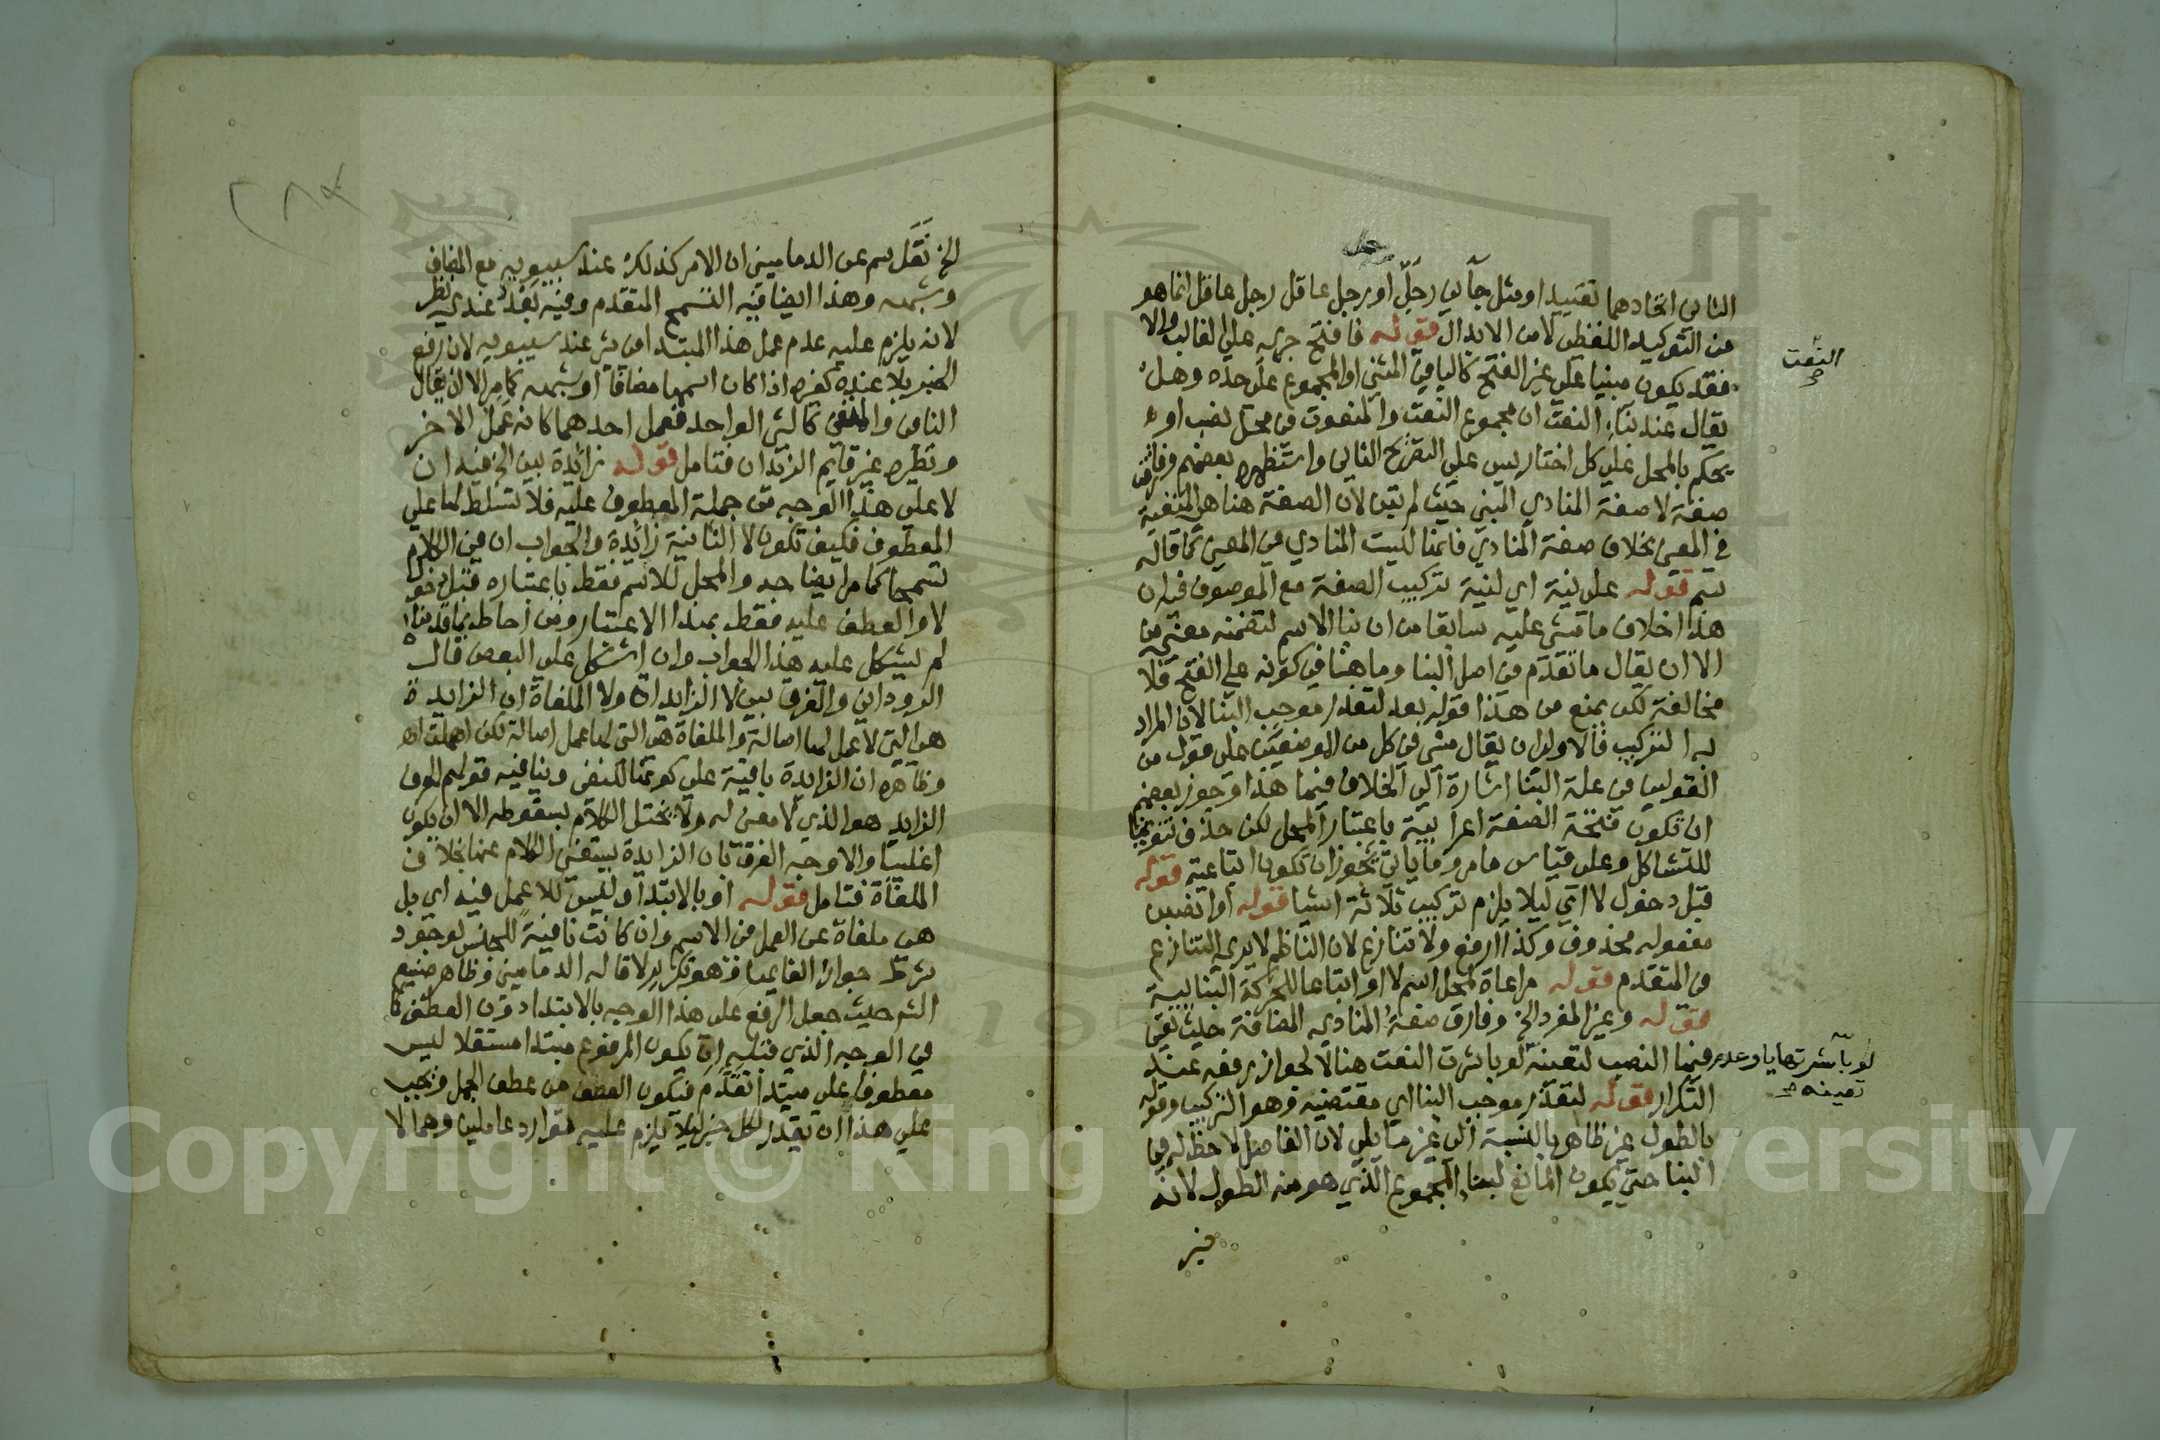 الثاني اتحادهما تقييد او مثل جآني رجل او رجل عاقل رجل عاقل انما هو
من التوكيد اللفظي لا من الابدال قوله فافتح جري على الغالب والا
فقد يكون مبنيا على غير الفتح كاليا في المثني او المجموع على حده وهل
يقال عند بناء النعت ان مجموع النعت والمنعوت في محل نصب او
يحكم بالمحل على كل اختار يس على التصريح الثاني واستظهره بعضهم وفارق
صفة لا صفة المنادي المبني حيث لم تبن لان الصفة هنا هي المنفية
في المعنى بخلاف صفة المنادي فانها ليست المنادي في المعنى كما قاله
سم قوله على نية اي لنية تركيب الصفة مع الموصوف فيه ان
هذا خلاف ما مشى عليه سابقا من ان بنا الاسم لتضمنه معنى من
الا ان يقال ما تقدم في اصل البنا وما هنا في كونه على الفتح فلا
مخالفة لكن يمنع من هذا قوله بعد لتعذر موجب البنا لان المراد
به التركيب فالاولى ان يقال مشى في كل من الموضعين على قول من
القولين في علة البنا اشارة الى الخلاف فيها هذا وجوز بعضهم
ان تكون فتحة الصفة اعرابية باعتبار المحل لكن حذف تنوينها
للتشاكل وعلى قياس ما مر وما ياتي يجوز ان تكون اتباعية قوله
قبل دخول لا اي ليلا يلزم تركيب ثلاثة اشيا قوله او انصبن
مفعوله محذوف وكذا ارفع ولا تنازع لان الناظم لا يري التنازع
في المتقدم قوله مراعاة لمحل اسم لا او اتباعا للحركة البنائية
قوله وغير المفرد الخ وفارق صفة المنادي المضافة حيث تعين
فيها النصب لتعينه لو باشرت النعت هنا لا لجواز رفعه عند
التكرار قوله لتعذر موجب البنا اي مقتضيه وهو التركيب وقوله
بالطول غير ظاهر بالنسبة الى غير ما يلي لان الفاصل لا حظ له في
البنا حتى يكون المانع لبناء المجموع الذي هو منه الطول لانه
النعت صح
لو باشرتها يا وعدم تعينه صح
الخ نقل سم عن الدماميني ان الامر كذلك عند سيبويه مع المضاف
وشبهه وهذا ايضا فيه القسم المتقدم وفيه بعد عندي نظر
لانه يلزم عليه عدم عمل هذا المبتدا في شي عند سيبويه لان رفع
الخبر بلا عنده كغيره اذا كان اسمها مضافا او شبهه كما مر الا ان يقال
النافي والمنفي كالشي الواحد فعمل احدهما كانه عمل الاخر
ونظيره غير قائم الزيدان فتامل قوله زائدة بين الخ فيه ان
لا على هذا الوجه من جملة المعطوف عليه فلا تسلط لها على
المعطوف فكيف تكون لا الثانية زائدة والجواب ان في الكلام
تسمحا كما مر ايضاحه والمحل للاسم فقط باعتباره قبل دخول
لا والعطف عليه فقط بهذا الاعتبار ومن احاط بما قدمناه
لم يشكل عليه هذا الجواب وان اشكل على البعض قال
الروداني والفرق بين لا الزايدة ولا الملغاة ان الزايدة
هي التي لا عمل لها اصالة والملغاة هي التي لها عمل اصالة لكن اهملت اه
وظاهره ان الزايدة باقية على كونها للنفي وينافيه قولهم الحرف
الزايد هو الذي لا معنى له ولا يختل الكلام بسقوطه الا ان يكون
اغلبيا والاوجه الفرق بان الزايدة يستغني الكلام عنها بخلاف
الملغاة فتامل قوله او بالابتدا وليس للا عمل فيه اي بل
هي ملغاة عن العمل في الاسم وان كانت نافية للجنس لوجود
شرط جواز الغايها وهو تكرير لا قاله الدماميني وظاهر صنيع
الشم حيث جعل الرفع على هذا الوجه بالابتدا دون العطف كما
في الوجه الذي قبله ان يكون المرفوع مبتدا مستقلا ليس
معطوفا على مبتدا تقدم فيكون العطف من عطف الجمل ويجب
على هذا ان يقدر لكل خبر ليلا يلزم عليه توارد عاملين وهما لا
Copyright © King University